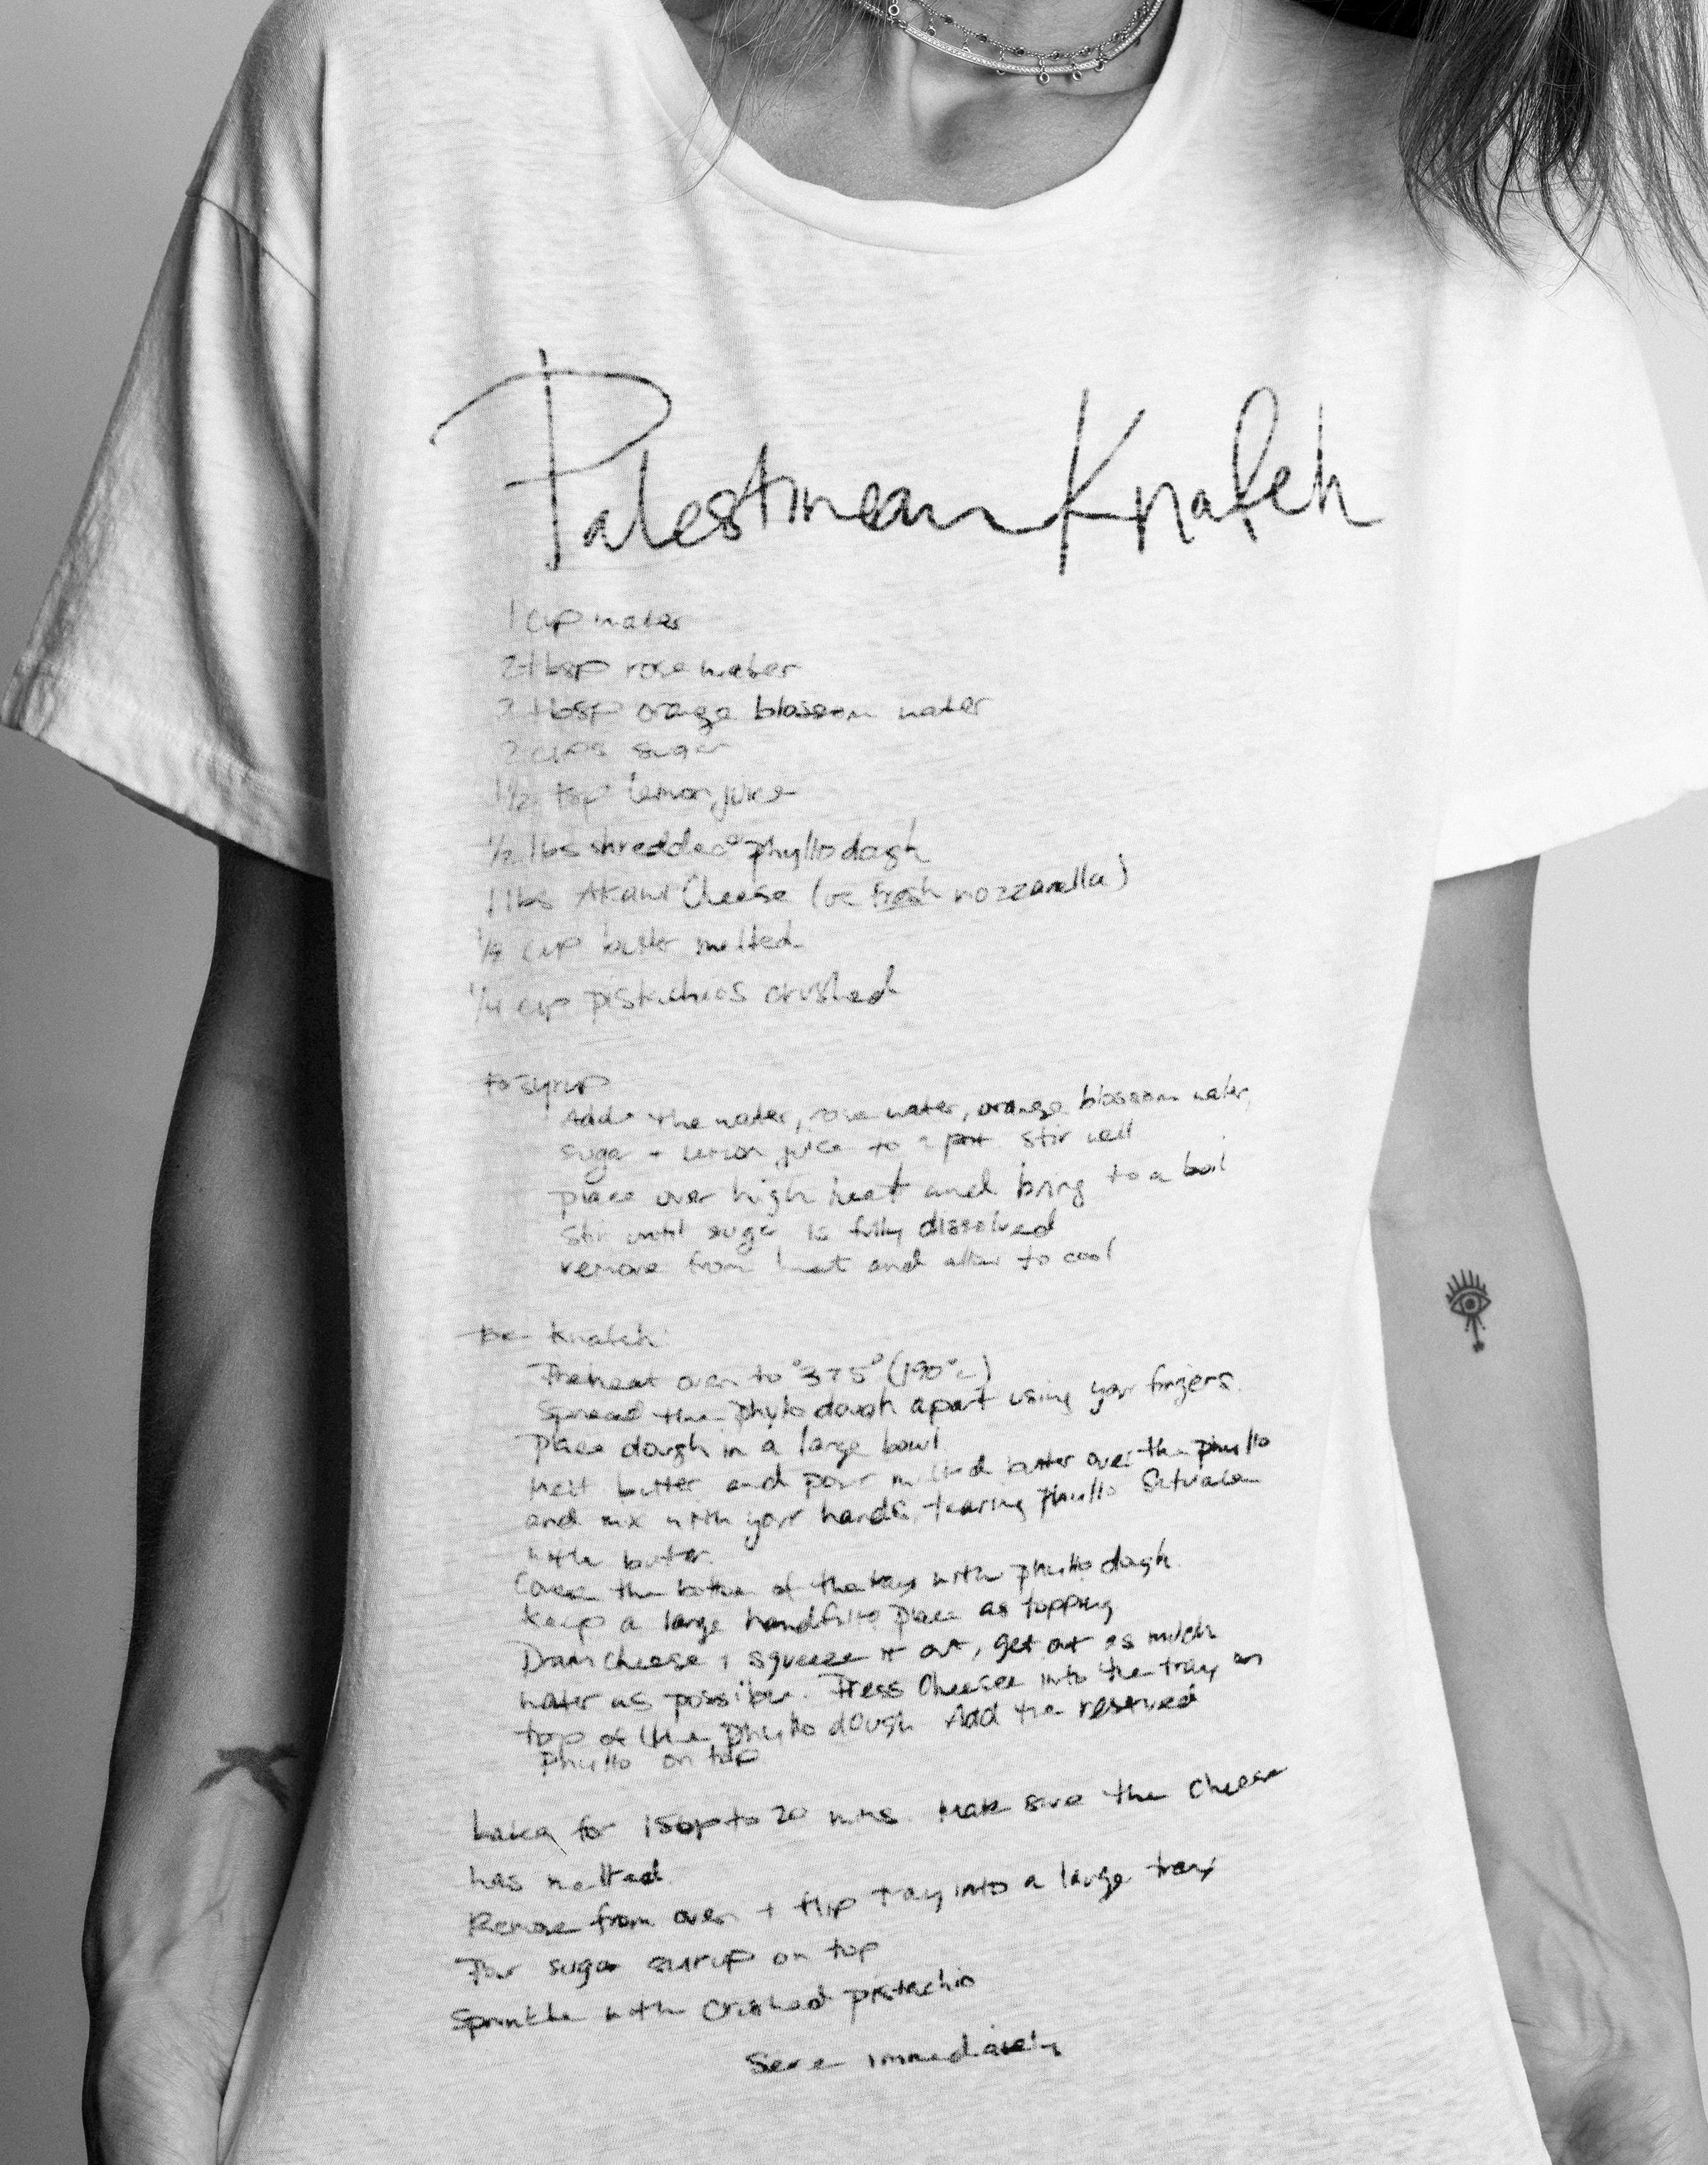 Palestinean Knafeh
1 cup water
2 tbsp rose water
2 tbsp orange blossom water
2 cups sugar
1 1/2 tsp lemon juice
1/2 lbs shredded phyllo dough
1 lbs Akawi Cheese (or fresh mozzarella)
cup butter melted
1/4 cup pistachios crushed
syrup
Add the water, rose water, orange blossom water,
sugar + lemon juice to a pot stir well
place over high heat and bring to a boil
Stir until sugar is fully dissolved
remove from heat and allow to cool
Knafeh
Preheat oven to 375° (190°c)
Spread the phyllo dough apart using your fingers.
Place dough in a large bowl
Melt butter and pour melted butter over the phyllo
and mix with your hands, tearing phyllo
butter.
Cover the bottom of the tray with phyllo dough.
Keep a large handful to place as topping
Drain cheese + squeeze it out, get out as much
water as possible. Press Cheese into the tray on
top of the phyllo dough Add the
Phyllo on top
for 15 up to 20 mins. Make sure the cheese
has melted
Remove from oven + flip tray into a large tray
Pour sugar surup on top
Sprinkle with crushed pistachio
Serve immediately